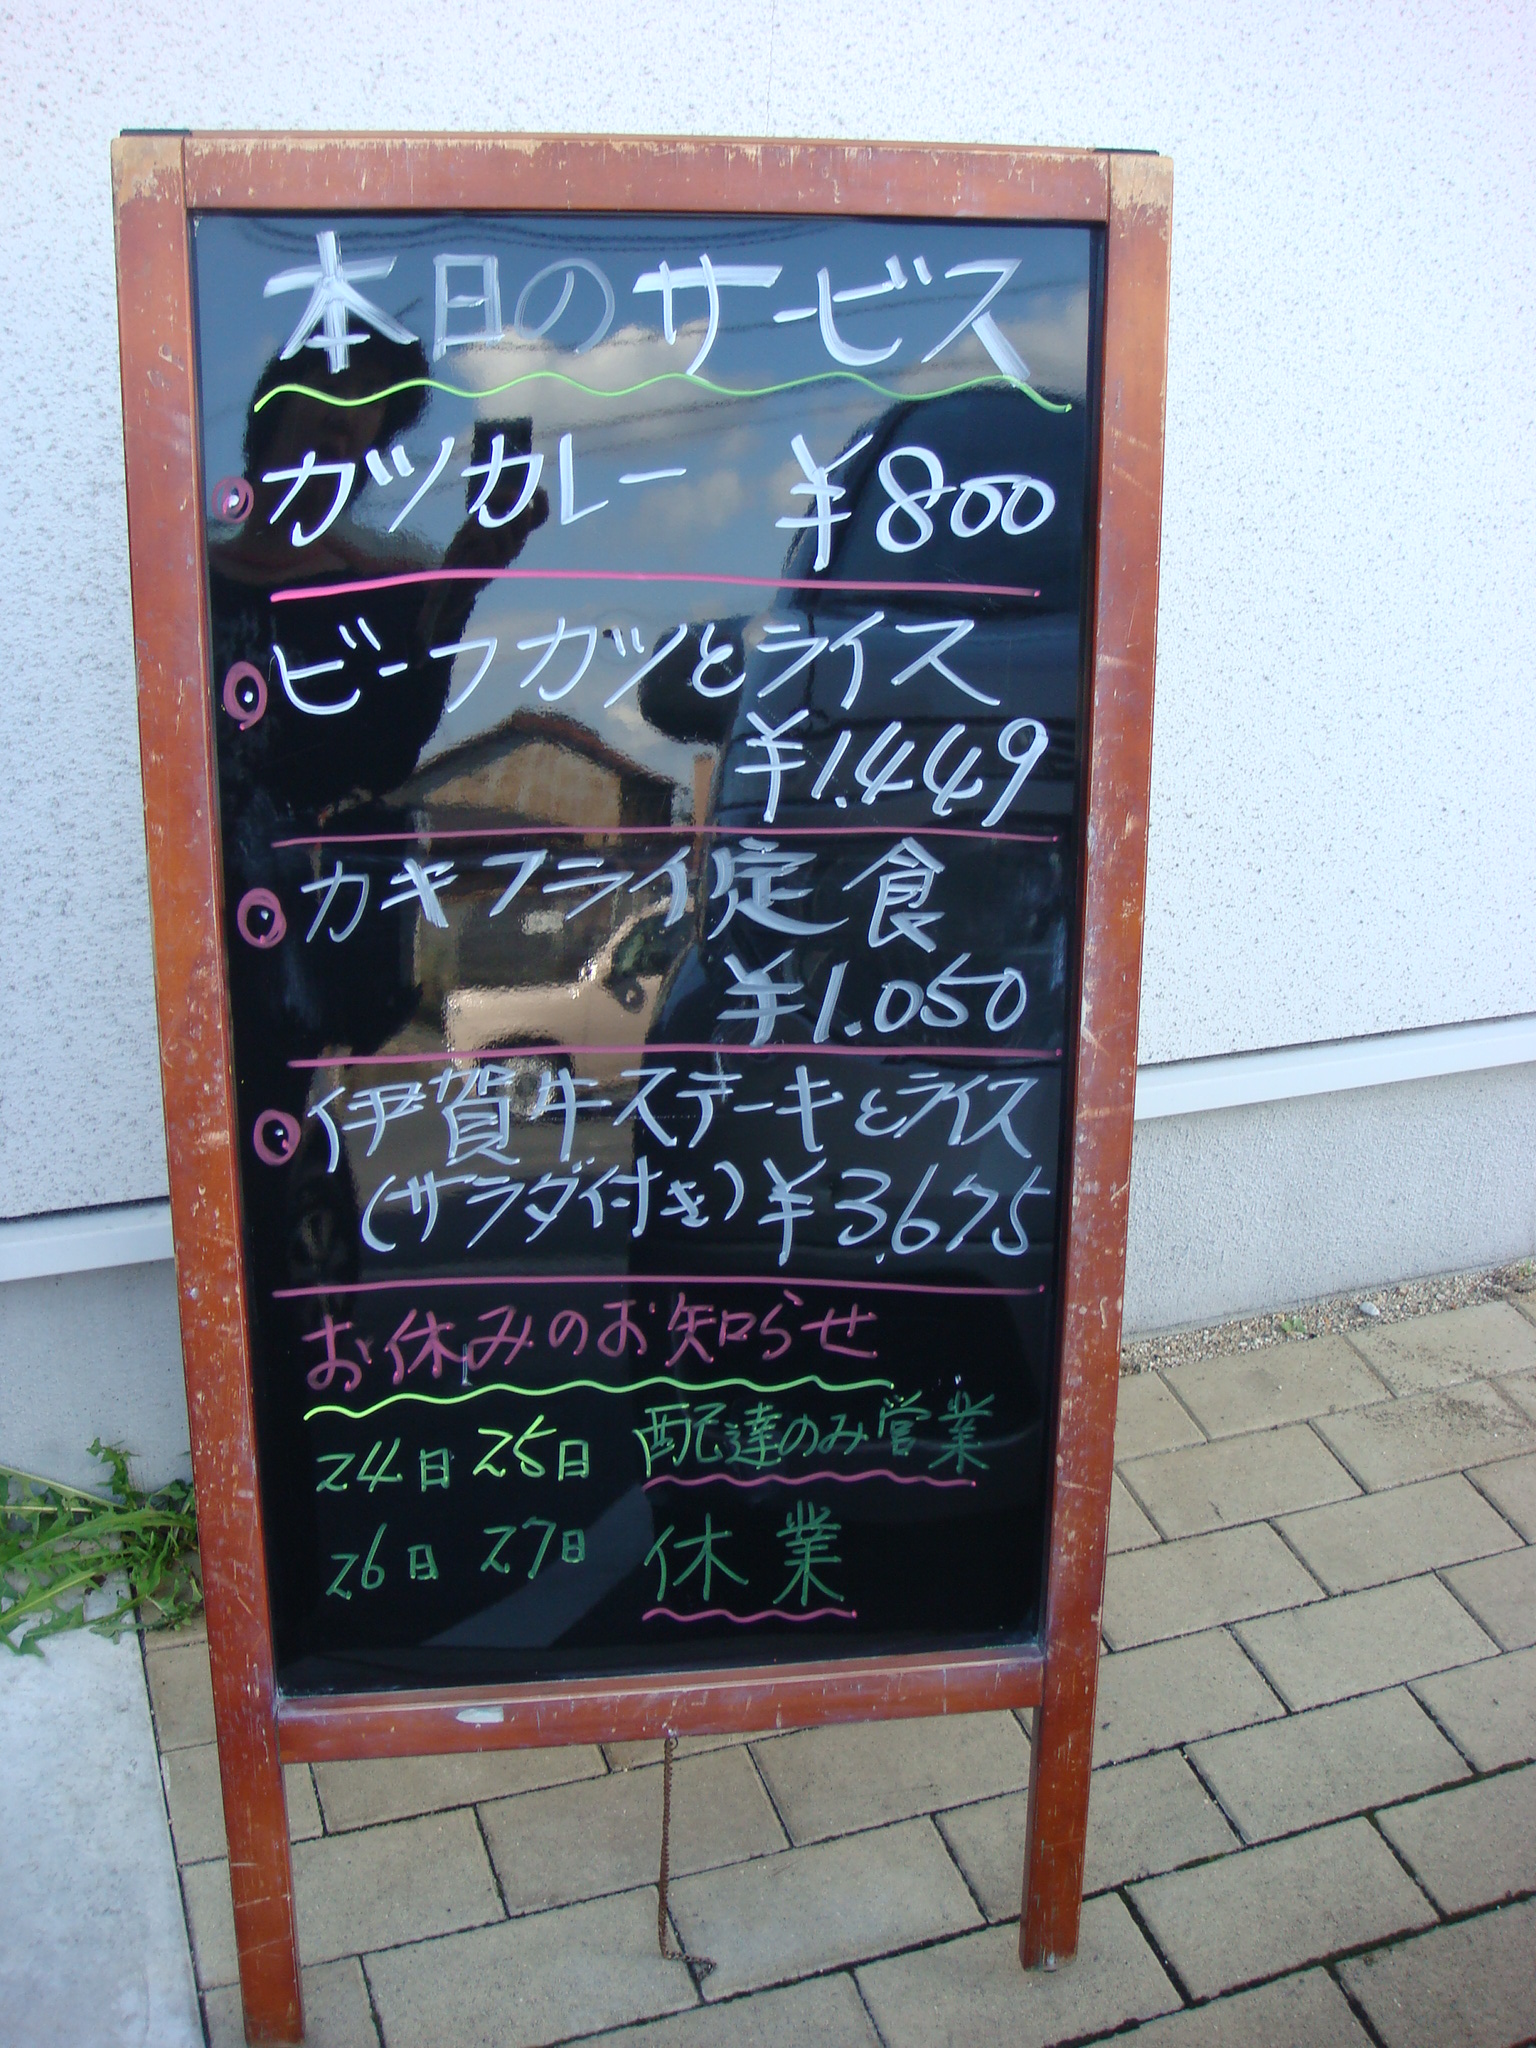 本日のサービス
カツカレー ¥800
ビーフカツとライス
¥1.449
カキフライ定食
¥1.050
伊賀牛ステーキとライス
(サラダ付き) ¥3.675
お休みのお知らせ
24日 25日 配達のみ営業
26日 27日 休業